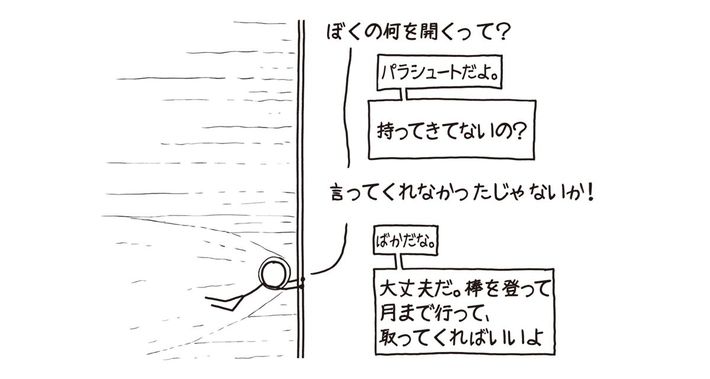 ぼくの何を開くって?
パラシュートだよ。
持ってきてないの?
言ってくれなかったじゃないか!
ばかだな。
大丈夫だ。棒を登って
月まで行って、
取ってくればいいよ